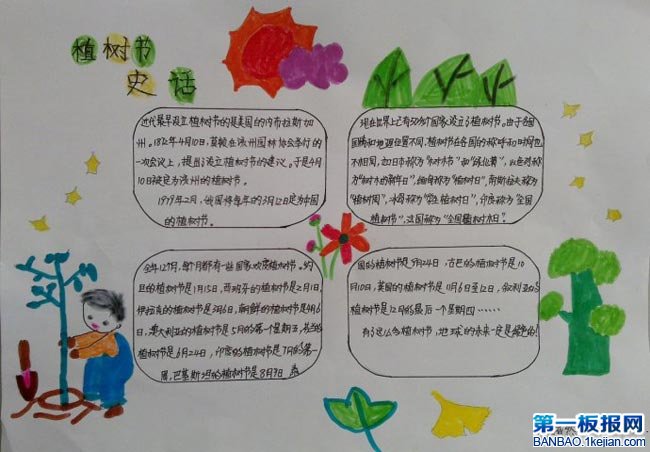 植树节
史话
近代最早设立植树节的是美国的内布拉斯加
州。1872年4月10日,莫顿在该州园林协会举行的
一次会议上,提出了设立植树节的建议。于是4月
10日被定为该州的植树节。
1979年2月,我国将每年的3月12日定为中国
的植树节。
现在世界上已有50多个国家设立了植树节。由于各国
国情和地理位置不同,植树节在各国的称呼和时间也
不相同,如日本称为“树木节”和“绿化周”,以色列称
为“树木的新年日”,缅甸称为“植树日”,南斯拉夫称为
“植树周”,冰岛称为“学生植树日”,印度称为“全国
植树节”,法国称为“全国植树日”。
全年12个月,每个月都有一些国家欢度植树节。约
旦的植树节是1月15日,西班牙的植树节是2月1日,
伊拉克的植树节是3月6日,朝鲜的植树节是4月6
日,澳大利亚的植树节是5月的第一个星期五,
的植树节是6月24日,印度的植树节是7月的第一
周,巴基斯坦的植树节是8月9日
国的植树节是9月24日,古巴的植树节是10
月10日,英国的植树节是11月6日至12日,叙利亚的
植树节是12月的最后一个星期四……
有了这么多植树节,地球的未来一定是绿色的!
第一板报网
BANBAO.1kejian.com